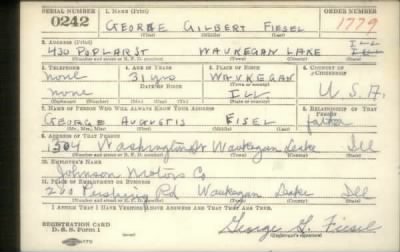 SERIAL NUMBER 1. NAME (Print) ORDER NUMBER
0242 GEORGE GILBERT FIESEL 1779
(First) (Middle) (Last)
2. ADDRESS (Print) ILL
430 POPLAR ST WAUKEGAN LAKE ILL
(Number and street or R. F. D. number) (Town) (County) (State)
3. TELEPHONE 4. AGE IN YEARS 5. PLACE OF BIRTH 6. COUNTRY OF CITIZENSHIP
none 31 yrs WAUKEGAN
DATE OF BIRTH (Town or county)
none ILL U. S. A.
(Exchange) (Number) (Mo.) (Day) (Yr.) (State or country)
7. NAME OF PERSON WHO WILL ALWAYS KNOW YOUR ADDRESS 8. RELATIONSHIP OF THAT PERSON
GEORGE AUGUSTIS FISEL father
(Mr., Mrs., Miss) (First) (Middle) (Last)
9. ADDRESS OF THAT PERSON
1504 Washington St Waukegan Lake Ill
(Number and street or R. F. D. number) (Town) (County) (State)
10. EMPLOYER'S NAME
Johnson Motors Co
11. PLACE OF EMPLOYMENT OR BUSINESS
200 Pershing Rd Waukegan Lake Ill
(Number and street or R. F. D. number) (Town) (County) (State)
I AFFIRM THAT I HAVE VERIFIED ABOVE ANSWERS AND THAT THEY ARE TRUE.
REGISTRATION CARD
D. S. S. Form 1 George G. Fiesel
(Registrant's signature)